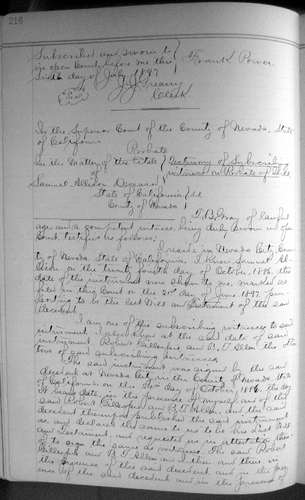 216
Subscribed and sworn to
in open Court before me this
day of July 1897
Frank Power
Clerk
Seal
In the Superior Court of the County of Nevada, State
of California
Probate
In the Matter of the Estate
of
Samuel Deceased
Testimony of Subscribing
witness on Probate of Will
State of California
County of Nevada
ss
T.B. Gray of lawful
age and a competent witness, being duly sworn in open
Court testifies as follows;
I reside in Nevada City Coun-
ty of Nevada State of California, I knew Samuel
on the twenty fourth day of October, 1896, the
date of the instrument now shown to me, marked as
filed in this Court on the day of June 1897, pur-
porting to be the last Will and Testament of the said
decedent
I am one of the subscribing witnesses to said
instrument. I also knew at the said date of said
instrument Robert and B.T. Allen the other
two of said subscribing witnesses.
The said instrument was signed by the said
decedent at Nevada City in the County of Nevada, State
of California on the day of October 1896 the day
it bears date in the presence of myself and of the
said Robert and B.T. Allen, and the said
decedent thereupon published the said instrument
as, and declared the same to be his Last Will
and Testament and requested us in attestation thereof
to sign the same as witnesses. The said Robert
and B.T. Allen and I then and there in
the presence of the said decedent and in the pres-
ence of the said decedent and in the presence of